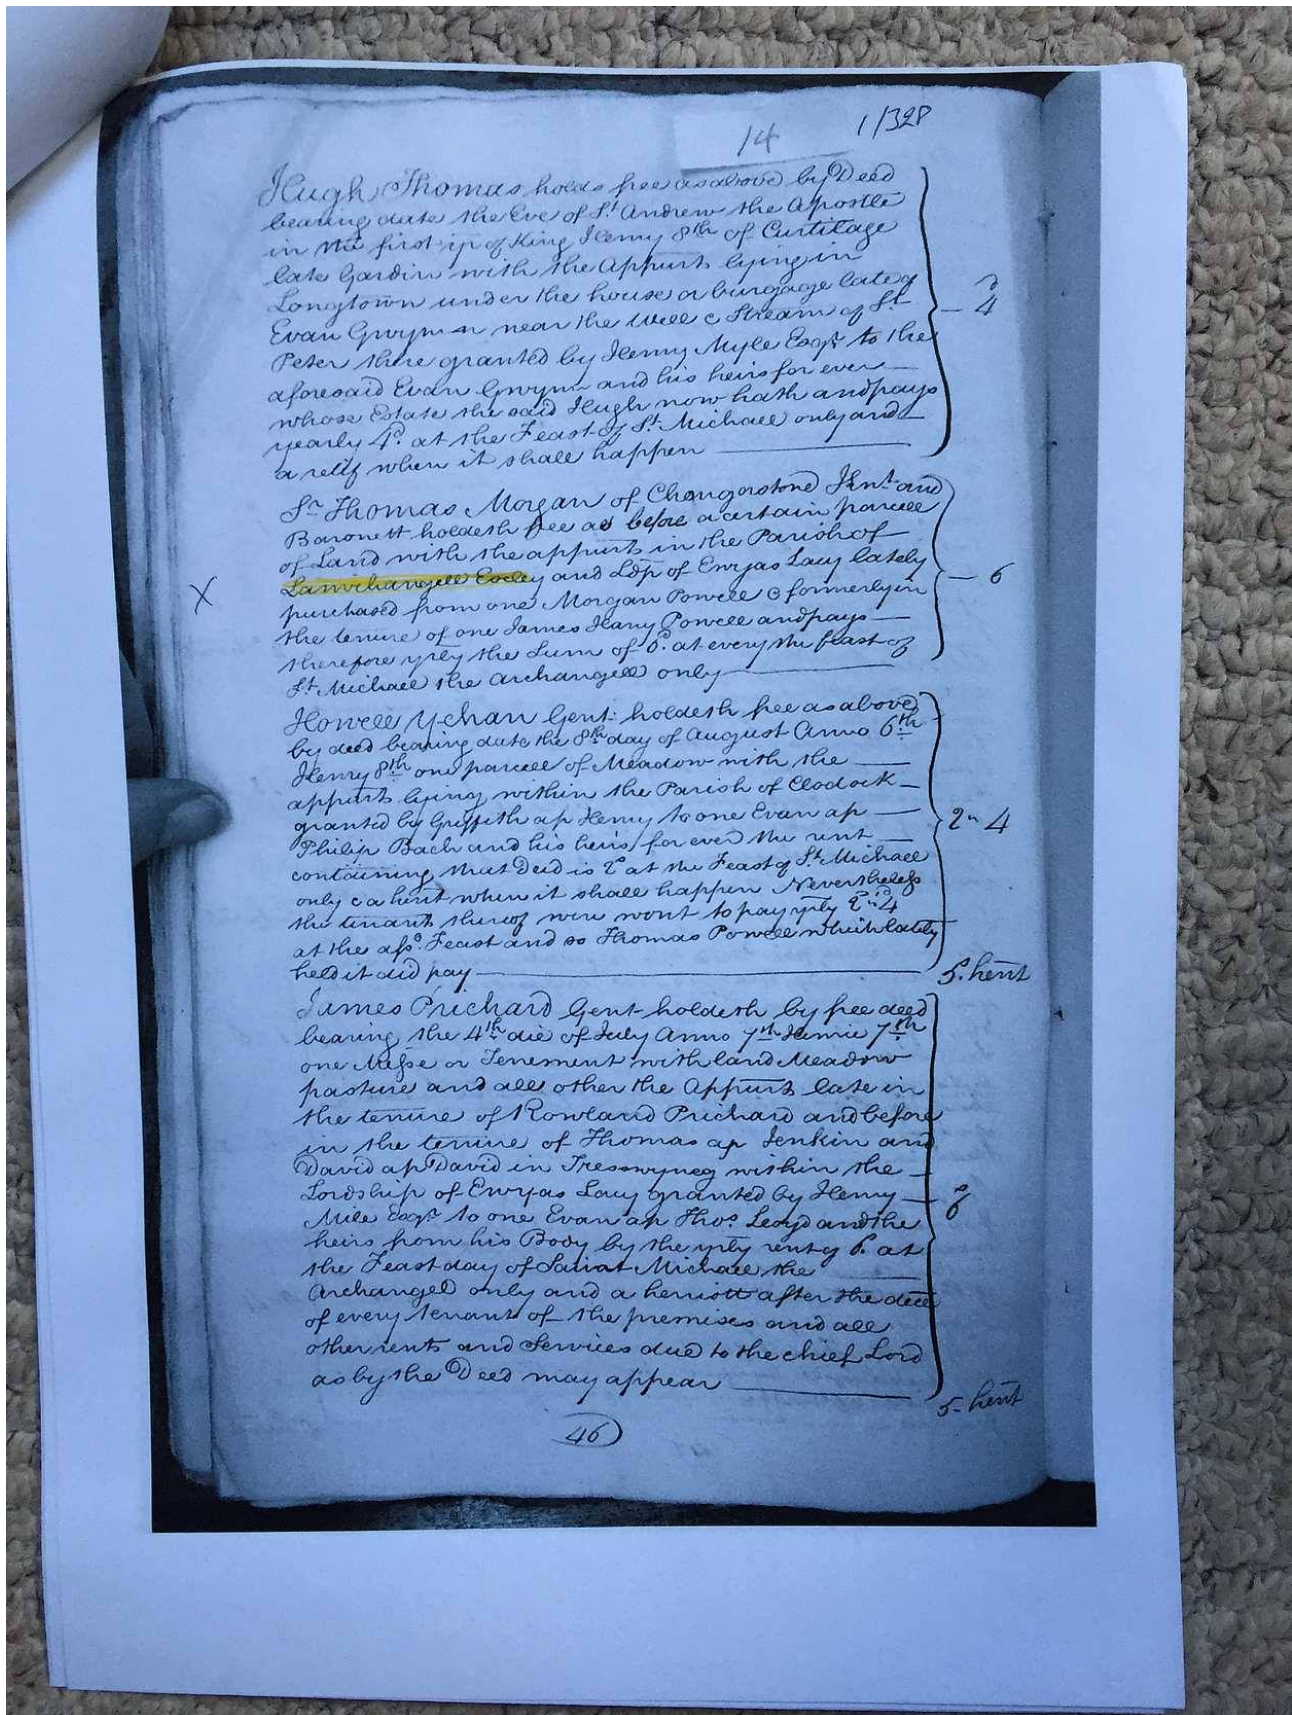 14
1/328
Hugh Thomas holds free as above by Deed
bearing date the Eve of St Andrew the Apostle
in the first yr of King Henry 8th of Curtilage
late Gardin with the Appurts lying in
Longtown under the house or burgage late of
Evan Gwynn near the Well & Stream of St
Peter there granted by Henry Myle Esqr to the
aforesaid Evan Gwynn and his heirs for ever
whose Estate the said Hugh now hath and pays
yearly 4d. at the Feast of St. Michael only and
a relif when it shall happen
— d 4
Sr Thomas Morgan of Knt and
Baronett holdeth free as before a certain parcell
of Land with the appurts in the Parish of
Lanvihangell Escley and Ldp of Ewyas Lacy lately
purchased from one Morgan Powell & formerly in
the tenure of one James Harry Powell and pays
therefore yrly the Sum of 6d. at every the feast of
St. Michael the Archangell only
— 6
X
Howell Ychan Gent: holdeth free as above
by deed bearing date the 8th day of August Anno 6th
Henry 8th one parcell of Meadow with the
appurts lying within the Parish of Clodock
granted by Griffith ap Henry to one Evan ap
Philip Bach and his heirs for ever the rent
containing that Deed is 2d at the Feast of St. Michael
only & a herit when it shall happen Nevertheless
the tenants thereof were wont to pay yrly 2s " 4d
at the afsd. Feast and so Thomas Powell which lately
held it did pay
2 " 4
5. herit
James Prichard Gent holdeth by free deed
bearing the 4th die of July Anno 7th Henrie 7th
one Messe or Tenement with land Meadow
pasture and all other the Appurts late in
the tenure of Rowland Prichard and before
in the tenure of Thomas ap Jenkin and
David ap David in Tresswyneg within the
Lordship of Ewyas Lacy granted by Henry
Mile Esqr to one Evan ap Thos. Lloyd and the
heirs from his Body by the yrly rent of 6d. at
the Feast day of Saint Michael the
Archangel only and a heriott after the dece
of every tenant of the premises and all
other rents and Services due to the chief Lord
as by the Deed may appear
— d 6
5 - herit
46